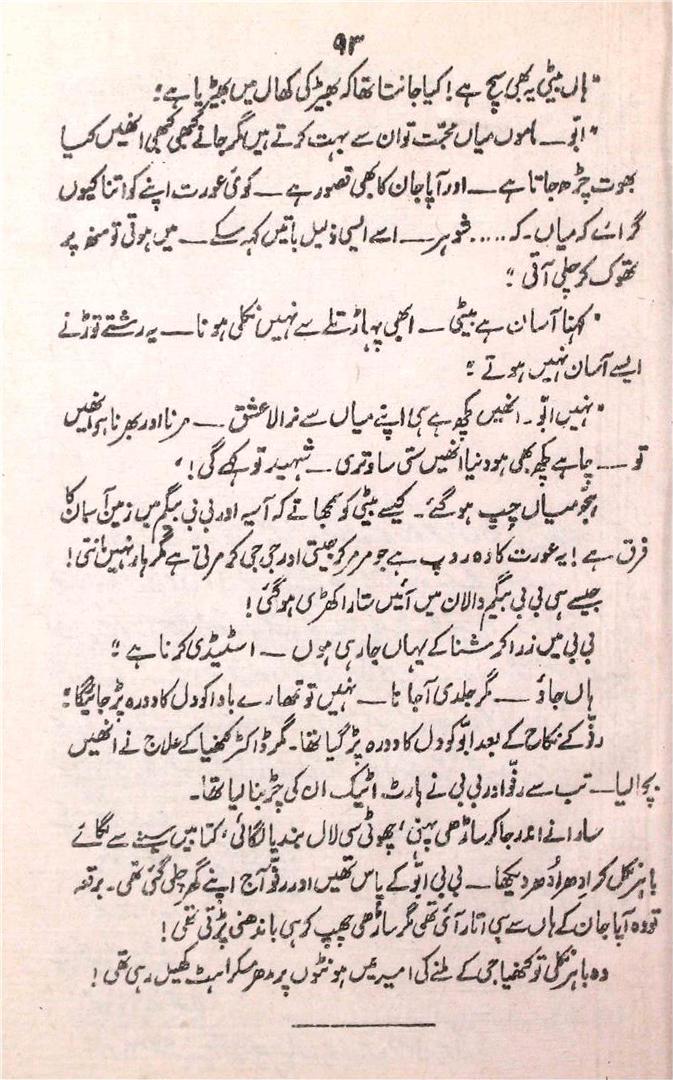 ۹۳
"ہاں بیٹی یہ بھی سچ ہے! کیا جانتا تھا کہ بھیڑ کی کھال میں بھیڑیا ہے؛
"ابّو — ماموں میاں محبّت تو ان سے بہت کرتے ہیں مگر جانے کبھی کبھی انھیں کیا
بھوت چڑھ جاتا ہے — اور آپا جان کا بھی تصور ہے — کوئی عورت اپنے کو اتنا کیوں
گرائے کہ میاں۔ کہ ..... شوہر — اسے ایسی ذلیل باتیں کہہ سکے — میں ہوتی تو منھ پر
تھوک کر چلی آتی؛"
"کہنا آسان ہے بیٹی — ابھی پہاڑ تلے سے نہیں نکلی ہو نا — یہ رشتے توڑنے
ایسے آسان نہیں ہوتے؛"
"نہیں ابّو۔ انھیں کچھ ہے ہی اپنے میاں سے نرالا عشق — مرنا اور بھرنا ہوا انھیں
تو — چاہے کچھ بھی ہو دنیا انھیں ستی ساوتری — شہید تو کہے گی!"
میاں چپ ہو گئے۔ کیسے بیٹی کو سمجھاتے کہ آسیہ اور بی بی بیگم میں زمین آسمان کا
فرق ہے! یہ عورت کا وہ روپ ہے جو مر مر کر جیتی اور جی جی کر مرتی ہے مگر ہار نہیں مانتی!
جیسے ہی بی بی بیگم دالان میں آئیں سارا کھڑی ہو گئی!
بی بی میں ذرا کرشنا کے یہاں جا رہی ہوں — اسٹیڈی کرنا ہے؛"
ہاں جاؤ — مگر جلدی آ جانا — نہیں تو تمھارے باوا کو دل کا دورہ پڑ جائیگا؛
رفّو کے نکاح کے بعد ابّو کو دل کا دورہ پڑ گیا تھا۔ مگر ڈاکٹر کنھیا کے علاج نے انھیں
بچا لیا — تب سے رفّو اور بی بی نے ہارٹ اٹیک ان کی چڑ بنا لیا تھا۔
سارا نے اندر جا کر ساڑھی پہنی، چھوٹی سی لال بندیا لگائی، کتابیں سینے سے لگائے
باہر نکل کر اِدھر اُدھر دیکھا — بی بی ابّو کے پاس تھیں اور رفّو آج اپنے گھر چلی گئی تھی۔ برقعہ
تو وہ آپا جان کے ہاں سے ہی اتار آئی تھی مگر ساڑھی چھپ کر ہی باندھنی پڑتی تھی!
وہ باہر نکلی تو کنھیا جی کے ملنے کی امید میں ہونٹوں پر مدھر مسکراہٹ کھیل رہی تھی!